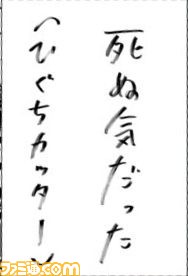 死ぬ気だった
（ひぐちカッター）
ファミ通.com